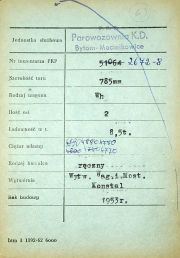 Jednostka służbowa
Parowozownia K.D.
Bytom-Maciejkowice
Nr inwentarza PKP 51064 2672-8
Szerokość toru 785mm
Rodzaj wagonu Wh
Ilość osi 2
Ładowność w t. 8,5t.
Ciężar własny
Rodzaj hamulca ręczny
Wytwórnia Wytw. Wag.i.Most.
Konstal
Rok budowy 1953r.